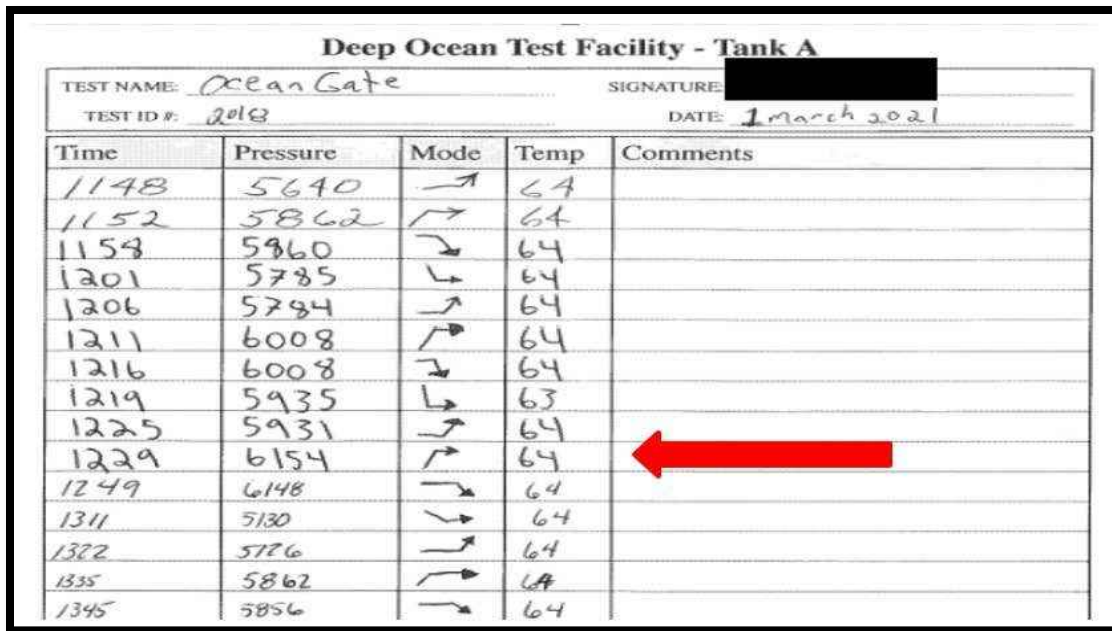 Deep Ocean Test Facility - Tank A
TEST NAME: OceanGate SIGNATURE:
TEST ID #: 2018 DATE: 1 March 2021
Time Pressure Mode Temp Comments
1148 5640 64
1152 5862 64
1158 5860 64
1201 5785 64
1206 5784 64
1211 6008 64
1216 6008 64
1219 5935 63
1225 5931 64
1229 6154 64
1249 6148 64
1311 5130 64
1322 5126 64
1335 5862 64
1345 5856 64